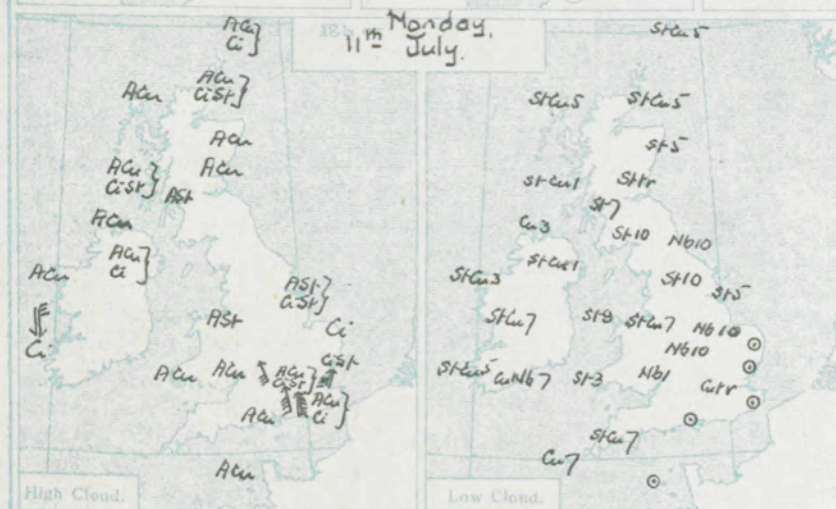 Monday,
11th July.
ACu
Ci
ACu
CiSt
ACu
ACu
ACu
ACu
CiSt
ASt
ACu
ACu
Ci
ACu
Ci
ASt
CiSt
Ci
ASt
CiSt
ACu
ACu
ACu
CiSt
ACu
Ci
ACu
ACu
High Cloud.
StCu5
StCu5
StCu5
St5
StCu1
Sttr
St7
Cu3
St10
Nb10
StCu1
StCu3
St10
St5
StCu7
St8
StCu7
Nb10
Nb10
StCu5
CuNb7
St3
Nb1
Cutr
StCu7
Cu7
Low Cloud.